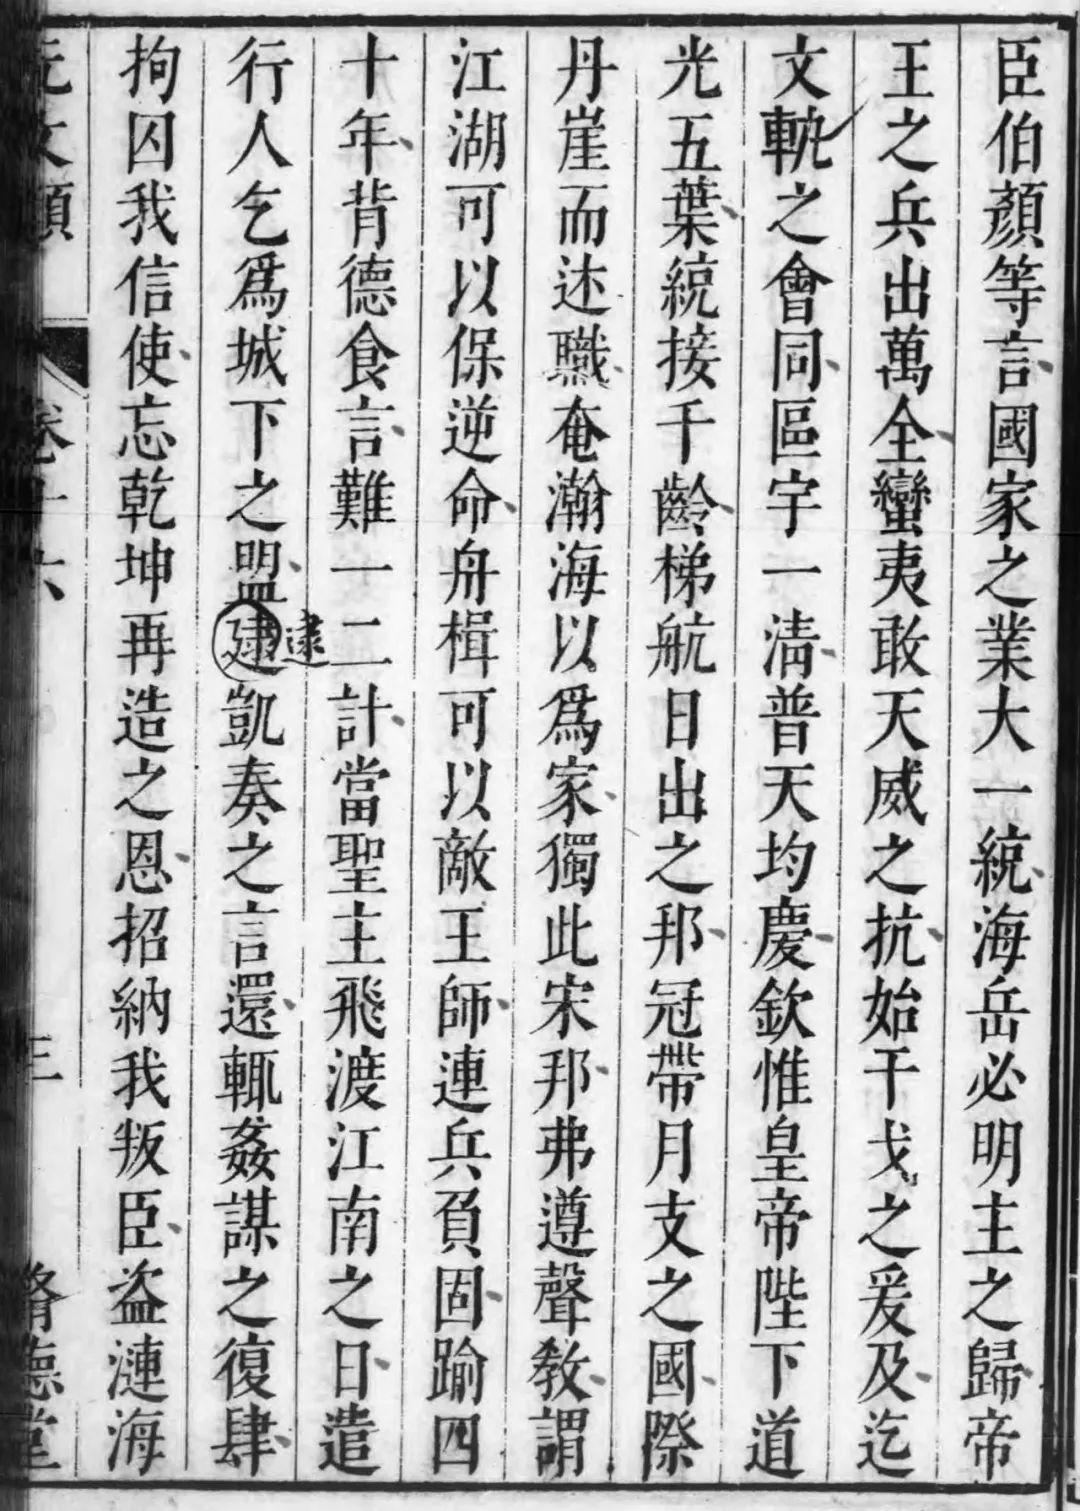 臣伯顏等言國家之業大一統海岳必明主之歸帝
王之兵出萬全蠻夷敢天威之抗始干戈之爰及迄
文軌之會同區宇一淸普天均慶欽惟皇帝陛下道
光五葉統接千齡梯航日出之邦冠帶月支之國際
丹崖而述職奄瀚海以爲家獨此宋邦弗遵聲敎謂
江湖可以保逆命舟楫可以敵王師連兵負固踰四
十年背德食言難一二計當聖主飛渡江南之日遣
行人乞爲城下之盟建凱奏之言還輒姦謀之復肆
逮
拘囚我信使忘乾坤再造之恩招納我叛臣盜漣海
元文類 卷十六 三 脩德堂